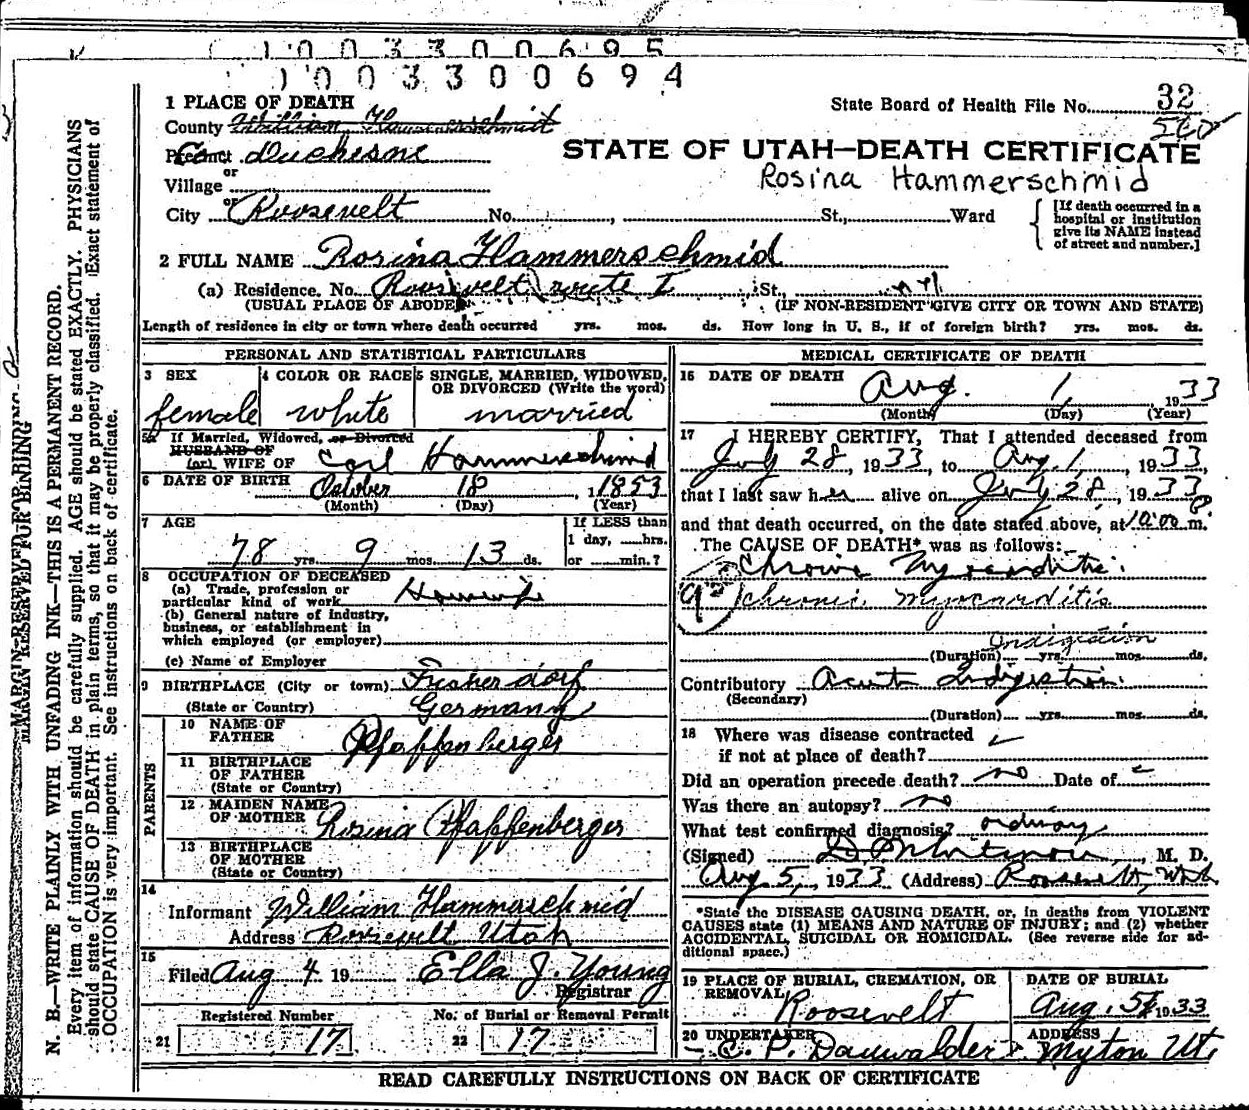 1003300695
1003300694
1 PLACE OF DEATH
State Board of Health File No. 32
County William Hammerschmid
Precinct Duchesne
STATE OF UTAH—DEATH CERTIFICATE
or
Rosina Hammerschmid
Village
or
City Roosevelt No. , St., Ward
[If death occurred in a hospital or institution give its NAME instead of street and number.]
2 FULL NAME Rosina Hammerschmid
(a) Residence. No. Roosevelt route 1 St.,
(USUAL PLACE OF ABODE) (IF NON-RESIDENT GIVE CITY OR TOWN AND STATE)
Length of residence in city or town where death occurred yrs. mos. ds. How long in U. S., if of foreign birth? yrs. mos. ds.
PERSONAL AND STATISTICAL PARTICULARS
3 SEX 4 COLOR OR RACE 5 SINGLE, MARRIED, WIDOWED,
OR DIVORCED (Write the word)
female white married
5a If Married, Widowed, or Divorced
HUSBAND OF
(or) WIFE OF Carl Hammerschmid
6 DATE OF BIRTH October 18, 1853
(Month) (Day) (Year)
7 AGE If LESS than
1 day, hrs.
78 yrs. 9 mos. 13 ds. or min.?
8 OCCUPATION OF DECEASED
(a) Trade, profession or
particular kind of work Housewife
(b) General nature of industry,
business, or establishment in
which employed (or employer)
(c) Name of Employer
9 BIRTHPLACE (City or town) Fisherdorf
(State or Country) Germany
PARENTS
10 NAME OF
FATHER Pfaffenberger
11 BIRTHPLACE
OF FATHER
(State or Country)
12 MAIDEN NAME
OF MOTHER Rosina Pfaffenberger
13 BIRTHPLACE
OF MOTHER
(State or Country)
14
Informant William Hammerschmid
Address Roosevelt Utah
15
Filed Aug 4 19 Ella J. Young
Registrar
Registered Number No. of Burial or Removal Permit
21 17 22 17
MEDICAL CERTIFICATE OF DEATH
16 DATE OF DEATH Aug. 1, 1933
(Month) (Day) (Year)
17 I HEREBY CERTIFY, That I attended deceased from
July 28, 1933, to Aug. 1, 1933,
that I last saw her alive on July 28, 1933
and that death occurred, on the date stated above, at 10:00 P m.
The CAUSE OF DEATH* was as follows:
Chronic Myocarditis
chronic myocarditis
Indigestion
(Duration) yrs. mos. ds.
Contributory Acute Indigestion
(Secondary)
(Duration) yrs. mos. ds.
18 Where was disease contracted
if not at place of death?
Did an operation precede death? no Date of
Was there an autopsy? no
What test confirmed diagnosis? ordinary
(Signed) M. D.
Aug 5, 1933 (Address) Roosevelt, Utah
*State the DISEASE CAUSING DEATH, or, in deaths from VIOLENT
CAUSES state (1) MEANS AND NATURE OF INJURY; and (2) whether
ACCIDENTAL, SUICIDAL OR HOMICIDAL. (See reverse side for ad-
ditional space.)
19 PLACE OF BURIAL, CREMATION, OR
REMOVAL Roosevelt
DATE OF BURIAL
Aug. 5, 1933
20 UNDERTAKER
C. P. Dauwalder
ADDRESS
Myton Ut.
READ CAREFULLY INSTRUCTIONS ON BACK OF CERTIFICATE
MARGIN RESERVED FOR BINDING
N. B.—WRITE PLAINLY WITH UNFADING INK—THIS IS A PERMANENT RECORD.
Every item of information should be carefully supplied. AGE should be stated EXACTLY. PHYSICIANS
should state CAUSE OF DEATH in plain terms, so that it may be properly classified. Exact statement of
OCCUPATION is very important. See instructions on back of certificate.